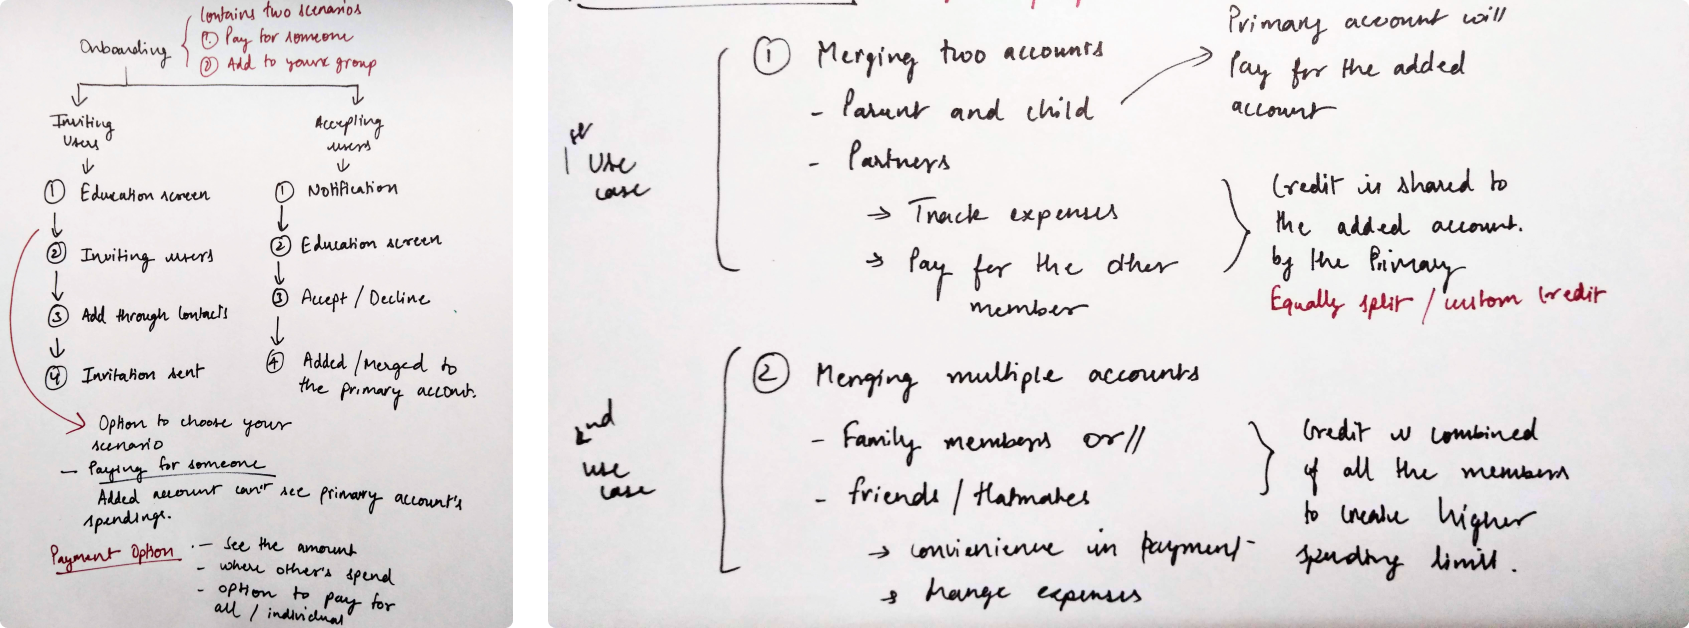 Contains two scenarios
Onboarding
① Pay for someone
② Add to your group
Inviting
Users
Accepting
users
① Education screen
② Inviting users
③ Add through Contacts
④ Invitation sent
① Notification
② Education screen
③ Accept / Decline
④ Added / Merged to
the primary account.
Option to choose your
scenario
- Paying for someone
Added account can't see primary account's
spendings.
Payment Option
- See the amount
- where other's spend
- option to pay for
all / individual
1st Use
case
① Merging two accounts
- Parent and child
- Partners
→ Track expenses
→ Pay for the other
member
Primary account will
Pay for the added
account
Credit is shared to
the added account.
by the Primary
Equally split / custom credit
2nd
use
case
② Merging multiple accounts
- Family members or //
- friends / flatmates
→ convienience in payment
→ expenses
Credit is combined
of all the members
to create higher
spending limit.